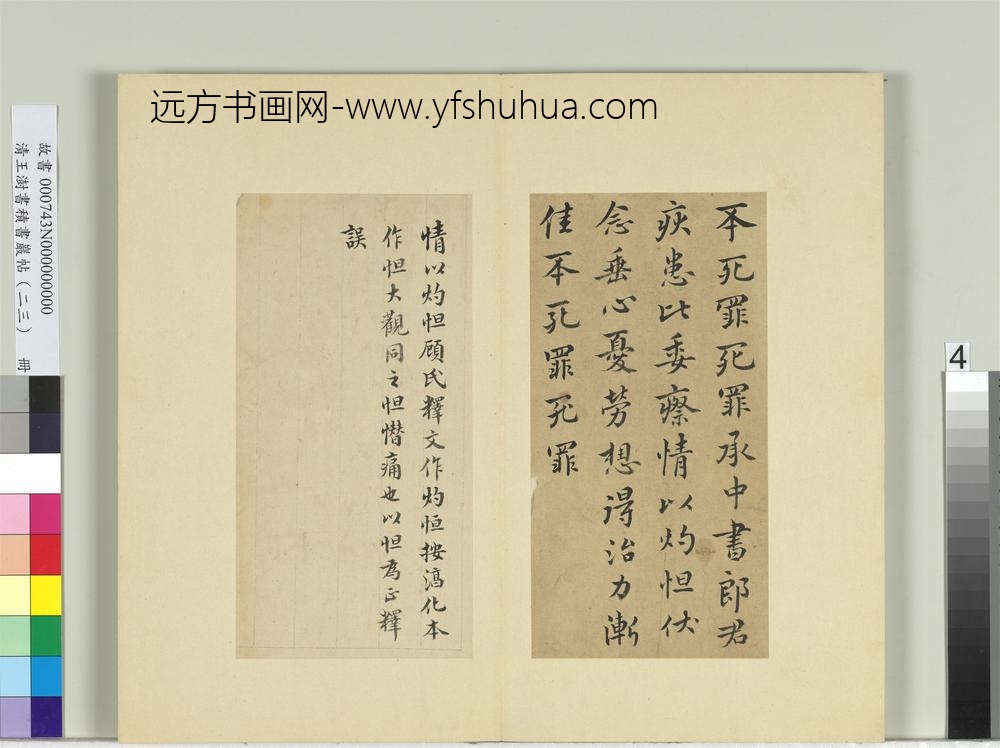 远方书画网-www.yfshuhua.com
不死罪死罪承中書郎君
疾患比委瘵情以灼怛伏
念垂心憂勞想得治力漸
佳不死罪死罪
情以灼怛顾氏釋文作灼恒按淳化本
作怛大觀同之怛懵痛也以怛為正釋
誤
故書 000743N000000000
清王澍書積書巖帖(二三) 冊
4